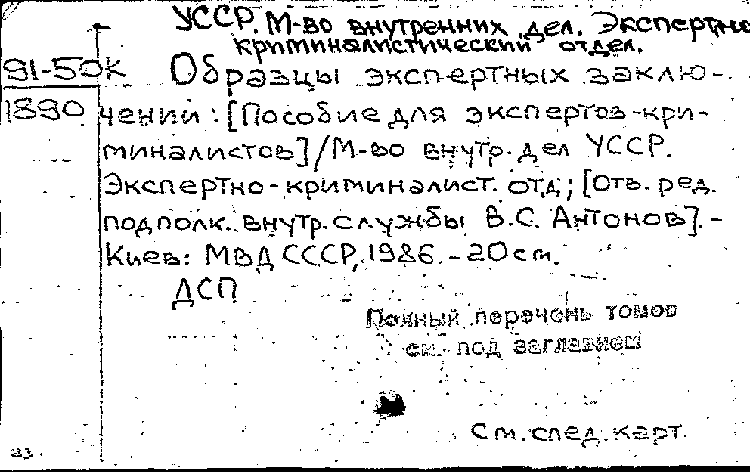 УССР. М-во внутренних дел. Экспертно
криминалистический отдел.
91-50к Образцы экспертных заклю-
1890 чений: [Пособие для экспертов-кри-
миналистов]/М-во внутр. дел УССР.
Экспертно-криминалист. отд; [Отв. ред.
подполк. внутр. службы В.С. Антонов]. -
Киев: МВД СССР, 1986. - 20 см.
ДСП
Полный перечень томов
см. под заглавием
См. след. карт.